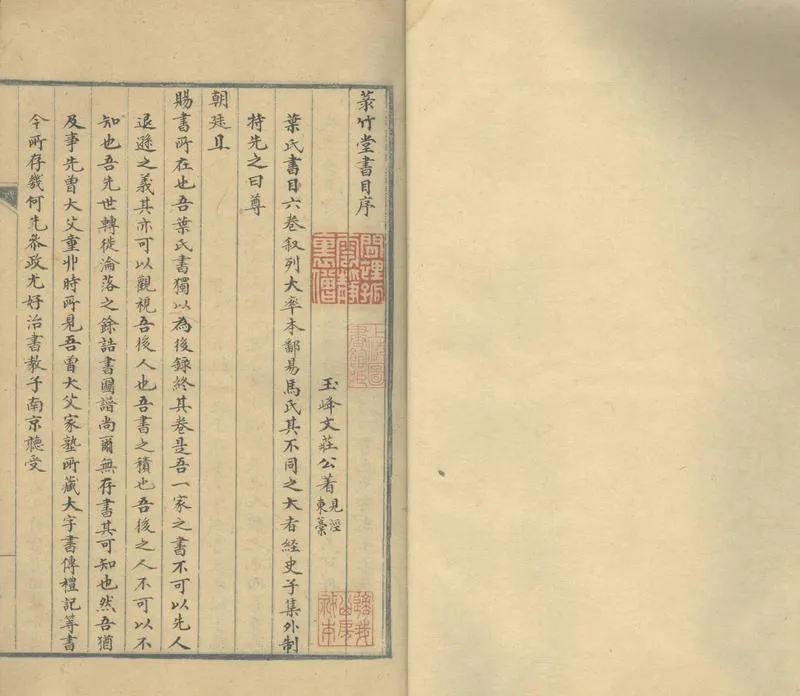 菉竹堂書目序
玉峰文莊公著見涇
東藁
葉氏書目六卷叙列大率本鄱昜馬氏其不同之大者経史子集外制
特先之曰尊
朝廷且
賜書所在也吾葉氏書獨以為後錄終其卷是吾一家之書不可以先人
退遜之義其亦可以觀視吾後人也吾書之積也吾後之人不可以不
知也吾先世轉徙淪落之餘誥書圖譜尚爾無存書其可知也然吾猶
及事先曾大父童丱時所見吾曾大父家塾所藏大字書傳禮記等書
今所存幾何先叅政尤好治書教子南京聽受